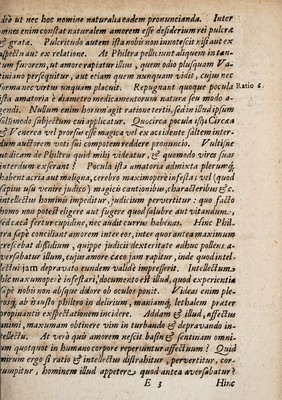 diò ut nec hoc nomine naturalia eadem pronuncianda. Inter
omnes enim constat naturalem amorem esse desiderium rei pulcræ
& gratæ. Pulcritudo autem ista nobis non innotescit nisi aut ex
aspectu aut ex relatione. At Philtra pelliciunt aliquem in tan-
tum furorem, ut amore rapiatur illius, quem odio plusquam Va-
tiniano persequitur, aut etiam quem nunquam vidit, cujus nec
forma nec virtus unquam placuit. Repugnant quoque pocula
Ratio 6.
ista amatoria è diametro medicamentorum natura seu modo a-
gendi. Nullum enim horum agit ratione tertii, sed in illud ipsum
solummodo subjectum cui applicatur. Quocirca pocula ista Circæa
& Venerea vel prorsus esse magica vel ex accidente saltem inter-
dum auctorem voti sui compotem reddere pronuncio. Vultisne
ut dicam de Philtris quid mihi videatur, & quomodo vires suas
interdum exserant? Pocula ista amatoria admixta plerumq;
habent acria aut maligna, cerebro maximopere infesta; vel (quod
sæpius usu venire judico) magicis cantionibus, characteribus & c.
intellectus hominis impeditur, judicium pervertitur: quo facto
homo non potest eligere aut fugere quod salubre aut vitandum,
sed cæca fertur cupidine, nec audit currus habenas. Hinc Phil-
tra sæpe conciliant amorem inter eos, inter quos antea maximum
crescebat dissidium, quippe judicii dexteritate adhuc pollens a-
versabatur illum, cujus amore cæco jam rapitur, inde quod intel-
lectui jam depravato eundem validè impresserit. Intellectum
hîc maximoperè infestari, documento est illud, quod experientia
sæpe nobis non absque dolore ob oculos ponit. Videas enim ple-
rosq; ab hausto philtro in delirium, maniam, lethalem præter
propinantis exspectationem incidere. Addam & illud, affectus
animi, maxumam obtinere vim in turbando & depravando in-
tellectu. At verò quis amorem nescit basin & sentinam omni-
um quotquot in humano corpore reperiuntur affectuum? Quid
mirum ergo si ratio & intellectus distrahitur, pervertitur, cor-
rumpitur, hominem illud appetere quod antea aversabatur?
E 3 Hinc